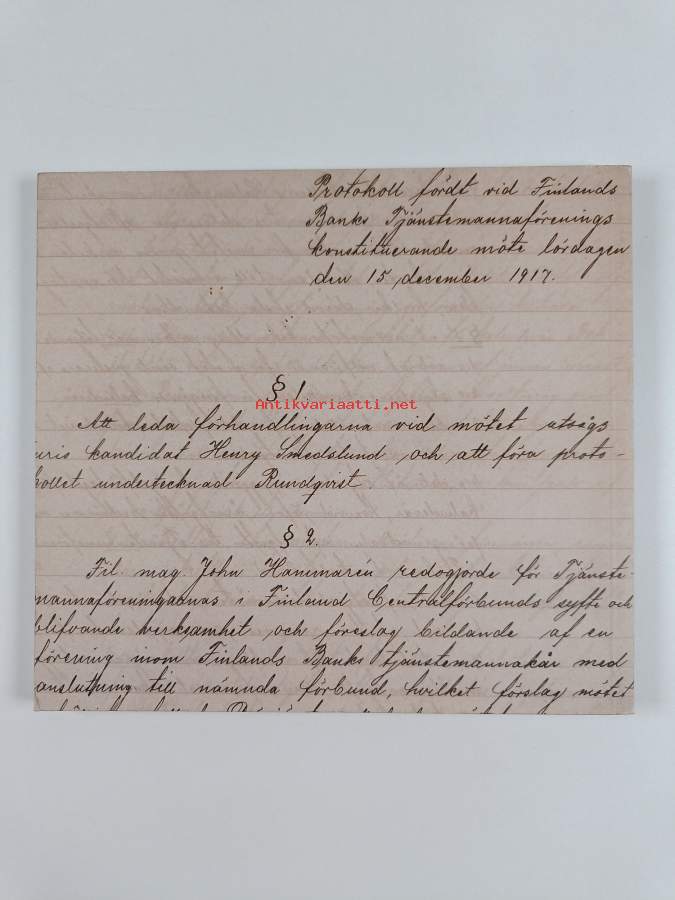 Protokoll fördt vid Finlands
Banks Tjänstemannaförenings
konstituerande möte lördagen
den 15 december 1917.
§ 1
Antikvariaatti.net
Att leda förhandlingarna vid mötet utsågs
uris kandidat Henry Smedslund och att föra proto-
kollet undertecknad Rundqvist.
§ 2.
Fil. mag. John Hammarén redogjorde för Tjänste-
mannaföreningarnas i Finland Centralförbunds syfte och
blifvande verksamhet och föreslog bildande af en
förening inom Finlands Banks tjänstemannakår med
anslutning till nämnda förbund, hvilket förslag mötet